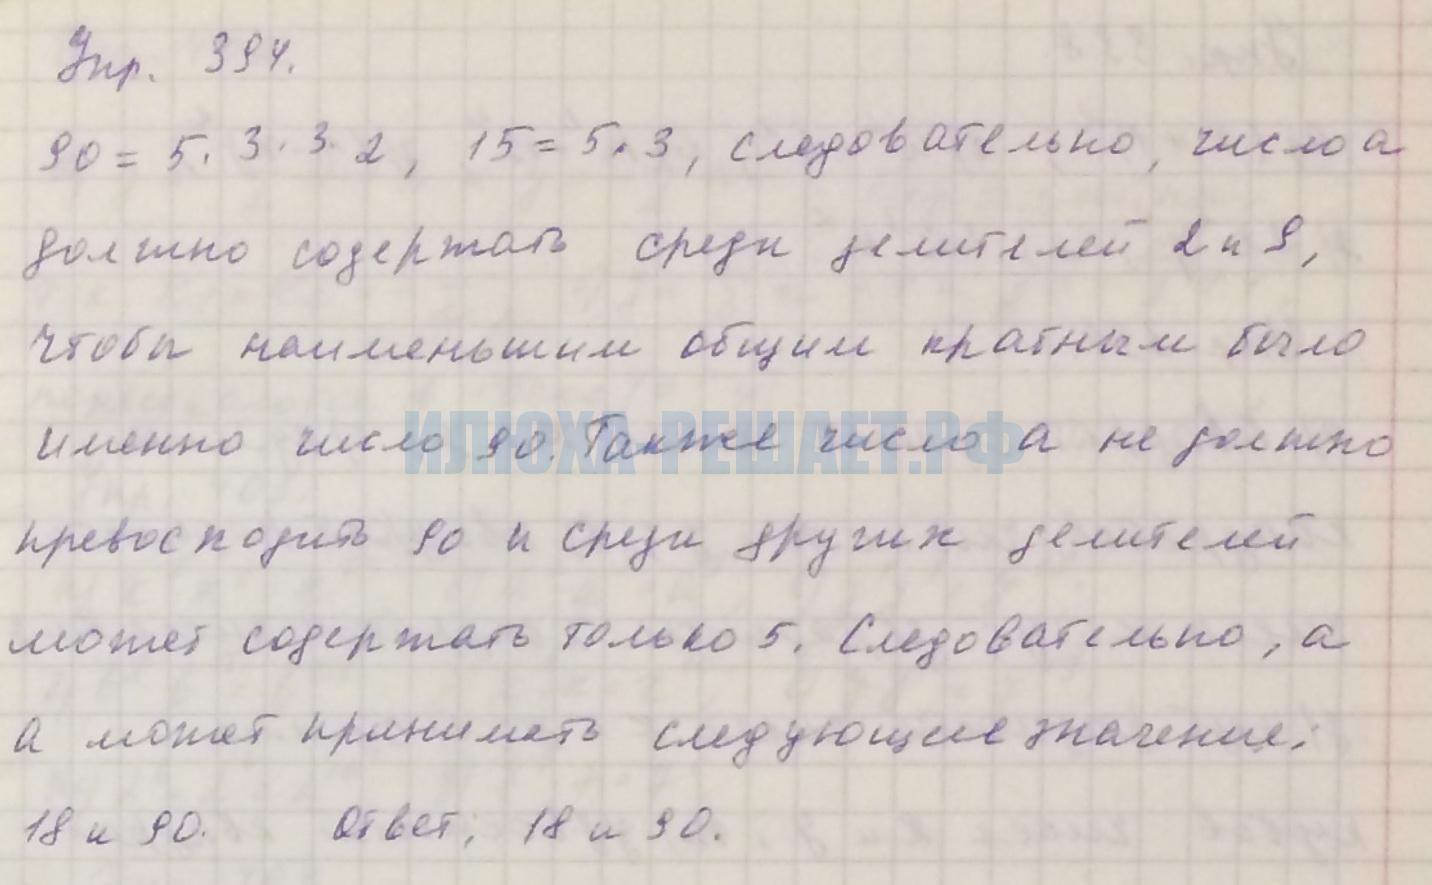 Упр. 394.
90 = 5 · 3 · 3 · 2, 15 = 5 · 3, следовательно, число а
должно содержать среди делителей 2 и 9,
чтобы наименьшим общим кратным было
именно число 90. Также число а не должно
превосходить 90 и среди других делителей
может содержать только 5. Следовательно, а
а может принимать следующие значение:
18 и 90. Ответ: 18 и 90.
ИЛЮХА-РЕШАЕТ.РФ